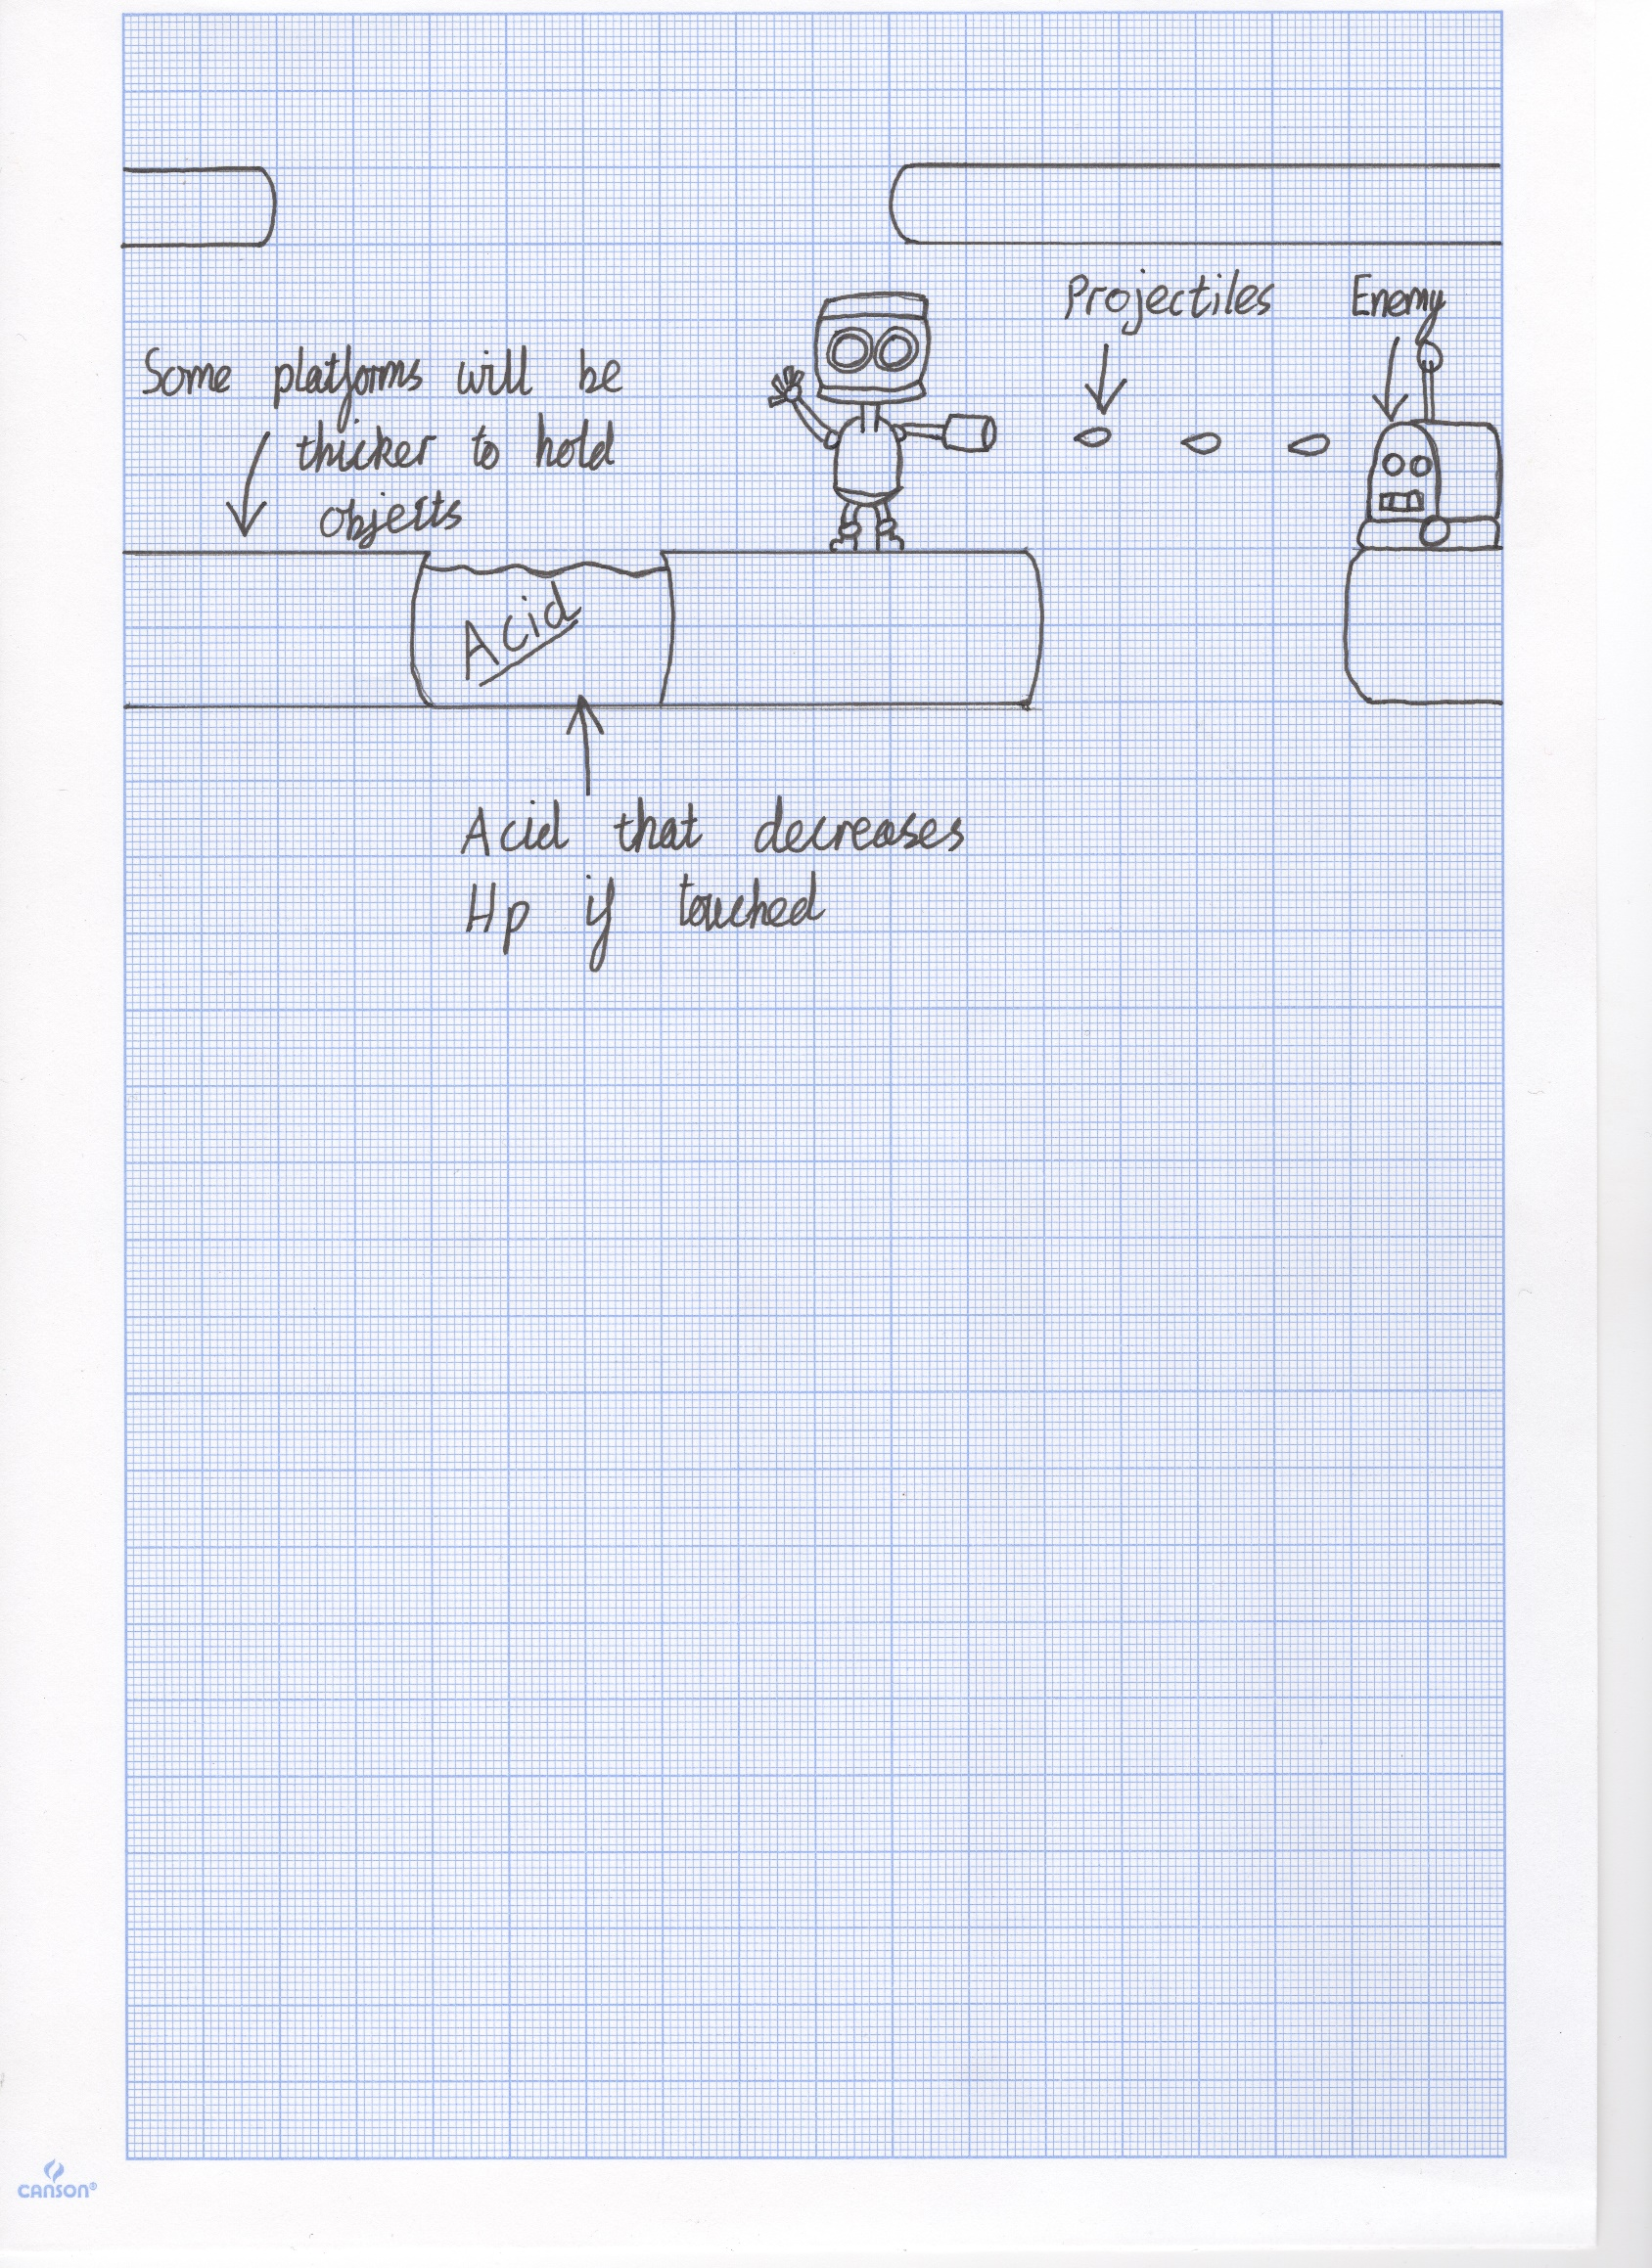 Projectiles
Enemy
Some platforms will be
thicker to hold
objects
Acid
Acid that decreases
Hp if touched
CANSON®